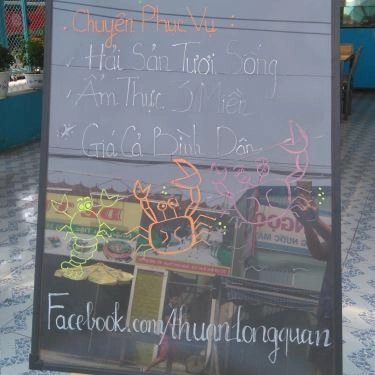 . Chuyên Phục Vụ
Hải Sản Tươi Sống
Ẩm Thực 3 Miền
* Giá Cả Bình Dân
Facebook.com/thuanlongquan